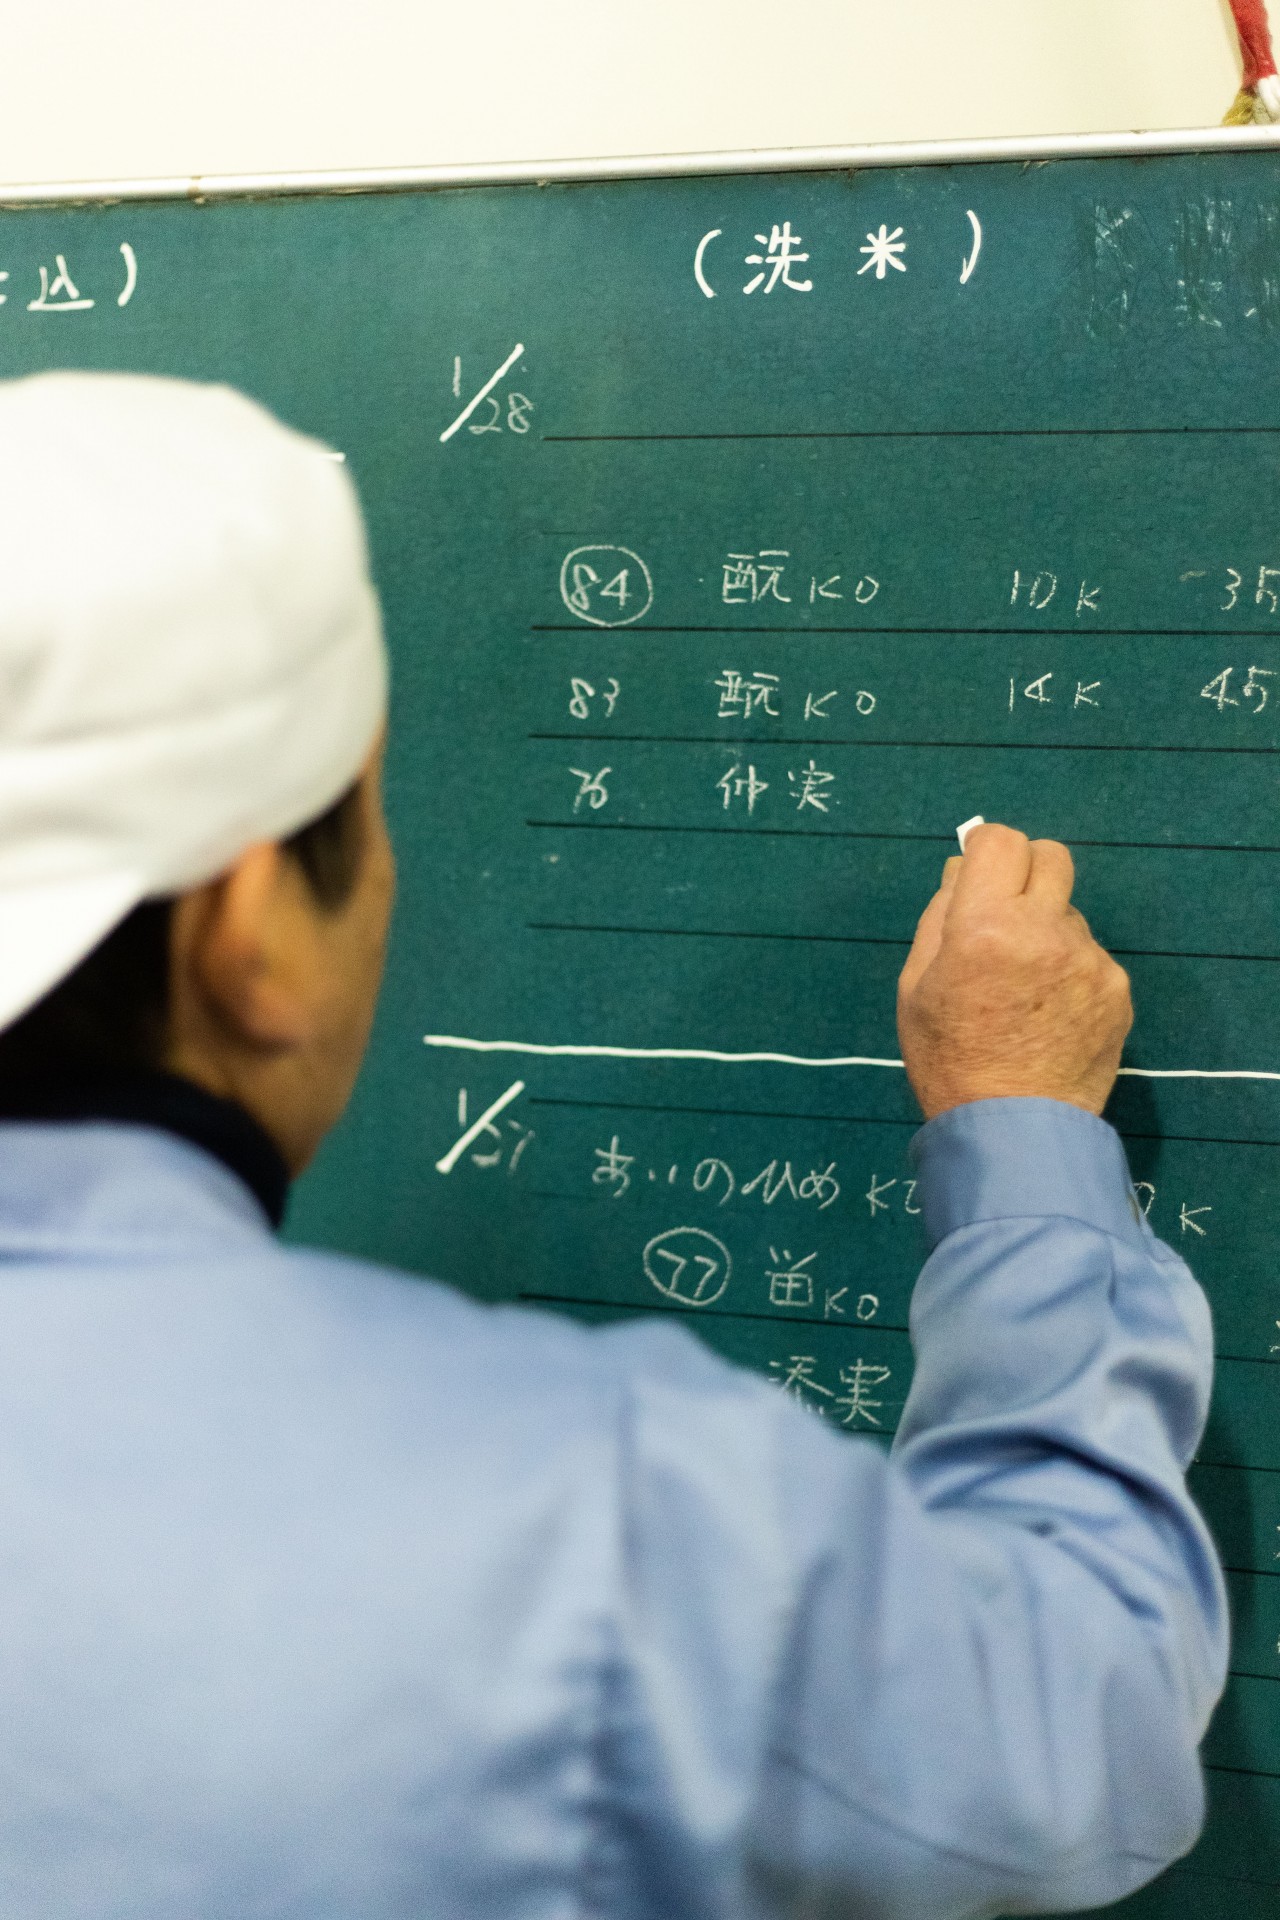 込)
(洗米)
1/28
84 酛KO 10K 35
83 酛KO 14K 45
76 仲実
1/27 あいのひめ K K
77 KO
添実